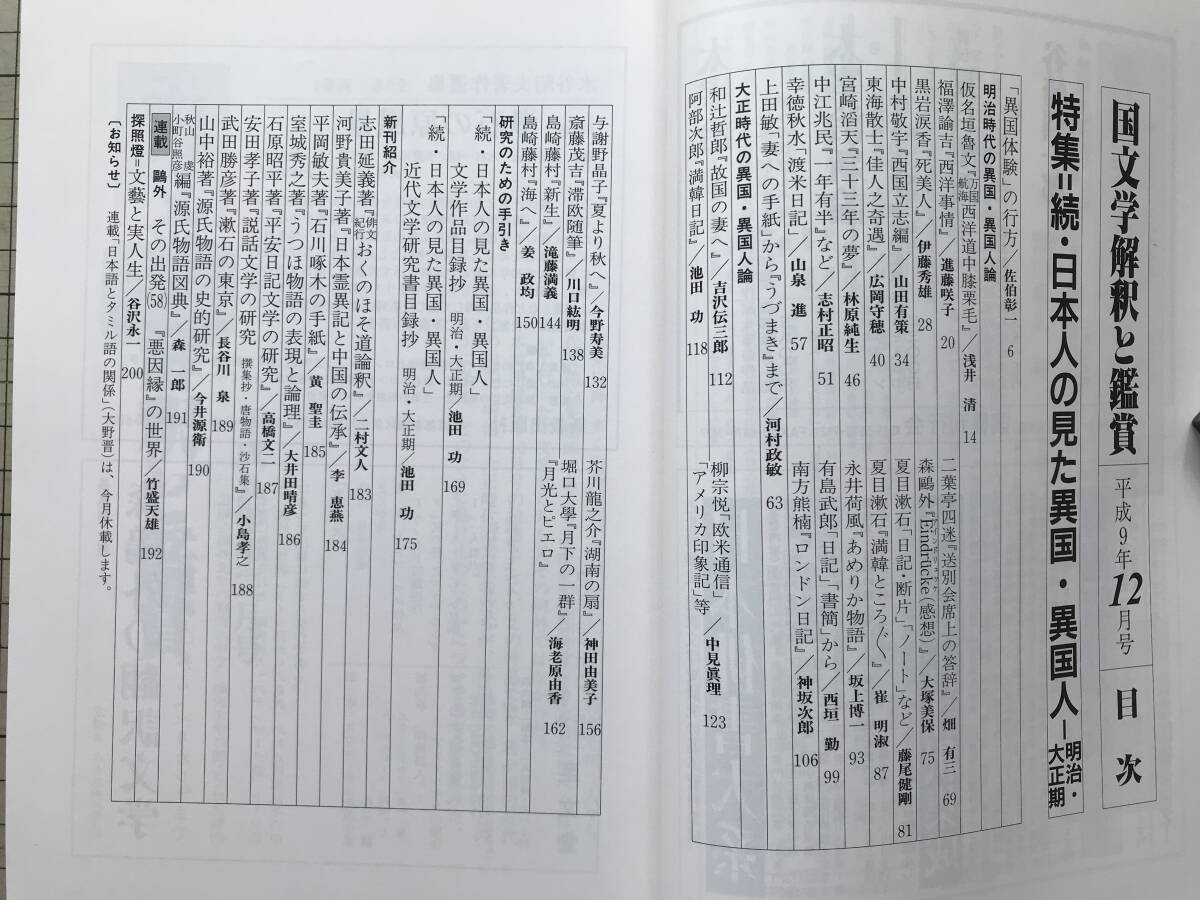 国文学解釈と鑑賞 平成9年12月号 目次
特集=続・日本人の見た異国・異国人―明治・大正期
「異国体験」の行方/佐伯彰一 6
明治時代の異国・異国人論
仮名垣魯文『万国航海西洋道中膝栗毛』/浅井 清 14
福澤諭吉『西洋事情』/進藤咲子 20
黒岩涙香『死美人』/伊藤秀雄 28
中村敬宇『西国立志編』/山田有策 34
東海散士『佳人之奇遇』/広岡守穂 40
宮崎滔天『三十三年の夢』/林原純生 46
中江兆民『一年有半』など/志村正昭 51
幸徳秋水「渡米日記」/山泉 進 57
上田敏「妻への手紙」から『うづまき』まで/河村政敏 63
二葉亭四迷『送別会席上の答辞』/畑 有三 69
森鷗外『Eindrücke(感想)』/大塚美保 75
夏目漱石「日記・断片」「ノート」など/藤尾健剛 81
夏目漱石『満韓ところ〴〵』/崔 明淑 87
永井荷風『あめりか物語』/坂上博一 93
有島武郎「日記」「書簡」から/西垣 勤 99
南方熊楠『ロンドン日記』/神坂次郎 106
大正時代の異国・異国人論
和辻哲郎『故国の妻へ』/吉沢伝三郎 112
阿部次郎『満韓日記』/池田 功 118
柳宗悦「欧米通信」「アメリカ印象記」等/中見眞理 123
与謝野晶子『夏より秋へ』/今野寿美 132
斎藤茂吉『滞欧随筆』/川口紘明 138
島崎藤村『新生』/滝藤満義 144
島崎藤村『海へ』/姜 政均 150
芥川龍之介『湖南の扇』/神田由美子 156
堀口大學『月下の一群』『月光とピエロ』/海老原由香 162
研究のための手引き
「続・日本人の見た異国・異国人」
文学作品目録抄 明治・大正期/池田 功 169
「続・日本人の見た異国・異国人」
近代文学研究書目録抄 明治・大正期/池田 功 175
新刊紹介
志田延義著『俳文紀行おくのほそ道論釈』/二村文人 183
河野貴美子著『日本霊異記と中国の伝承』/李 恵燕 184
平岡敏夫著『石川啄木の手紙』/黄 聖圭 185
室城秀之著『うつほ物語の表現と論理』/大井田晴彦 186
石原昭平著『平安日記文学の研究』/高橋文二 187
安田孝子著『説話文学の研究 撰集抄・唐物語・沙石集』/小島孝之 188
武田勝彦著『漱石の東京』/長谷川 泉 189
山中裕著『源氏物語の史的研究』/今井源衛 190
秋山 虔 小町谷照彦編『源氏物語図典』/森 一郎 191
連載 鷗外 その出発(58) 『悪因縁』の世界/竹盛天雄 192
探照燈=文藝と実人生/谷沢永一 200
〔お知らせ〕 連載「日本語とタミル語の関係」(大野晋)は、今月休載します。